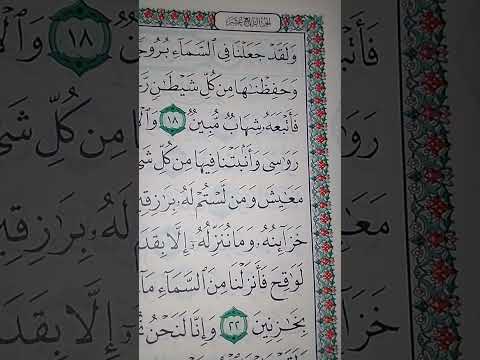 الجزء الرابع عشر
وَلَقَدْ جَعَلْنَا فِى ٱلسَّمَآءِ بُرُوجً
وَحَفِظْنَٰهَا مِن كُلِّ شَيْطَٰنٍ
فَأَتْبَعَهُۥ شِهَابٌ مُّبِينٌ ١٨
رَوَٰسِىَ وَأَنۢبَتْنَا فِيهَا مِن كُلِّ شَىْ
مَعَٰيِشَ وَمَن لَّسْتُمْ لَهُۥ بِرَٰزِقِي
خَزَآئِنُهُۥ وَمَا نُنَزِّلُهُۥٓ إِلَّا بِقَدَ
لَوَٰقِحَ فَأَنزَلْنَا مِنَ ٱلسَّمَآءِ مَآ
بِخَٰزِنِينَ ٢٢ وَإِنَّا لَنَحْنُ